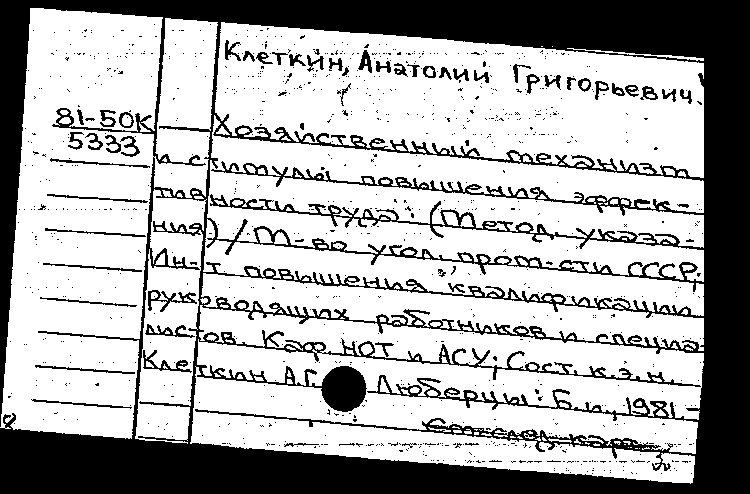 Клеткин, Анатолий Григорьевич.
81-50К
5333
Хозяйственный механизм
и стимулы повышения эффек-
тивности труда: (Метод. указа-
ния) / М-во угол. пром-сти СССР;
Ин-т повышения квалификации
руководящих работников и специа-
листов. Каф. НОТ и АСУ; Сост. к.э.н.
Клеткин А.Г. Люберцы: Б.и., 1981.-